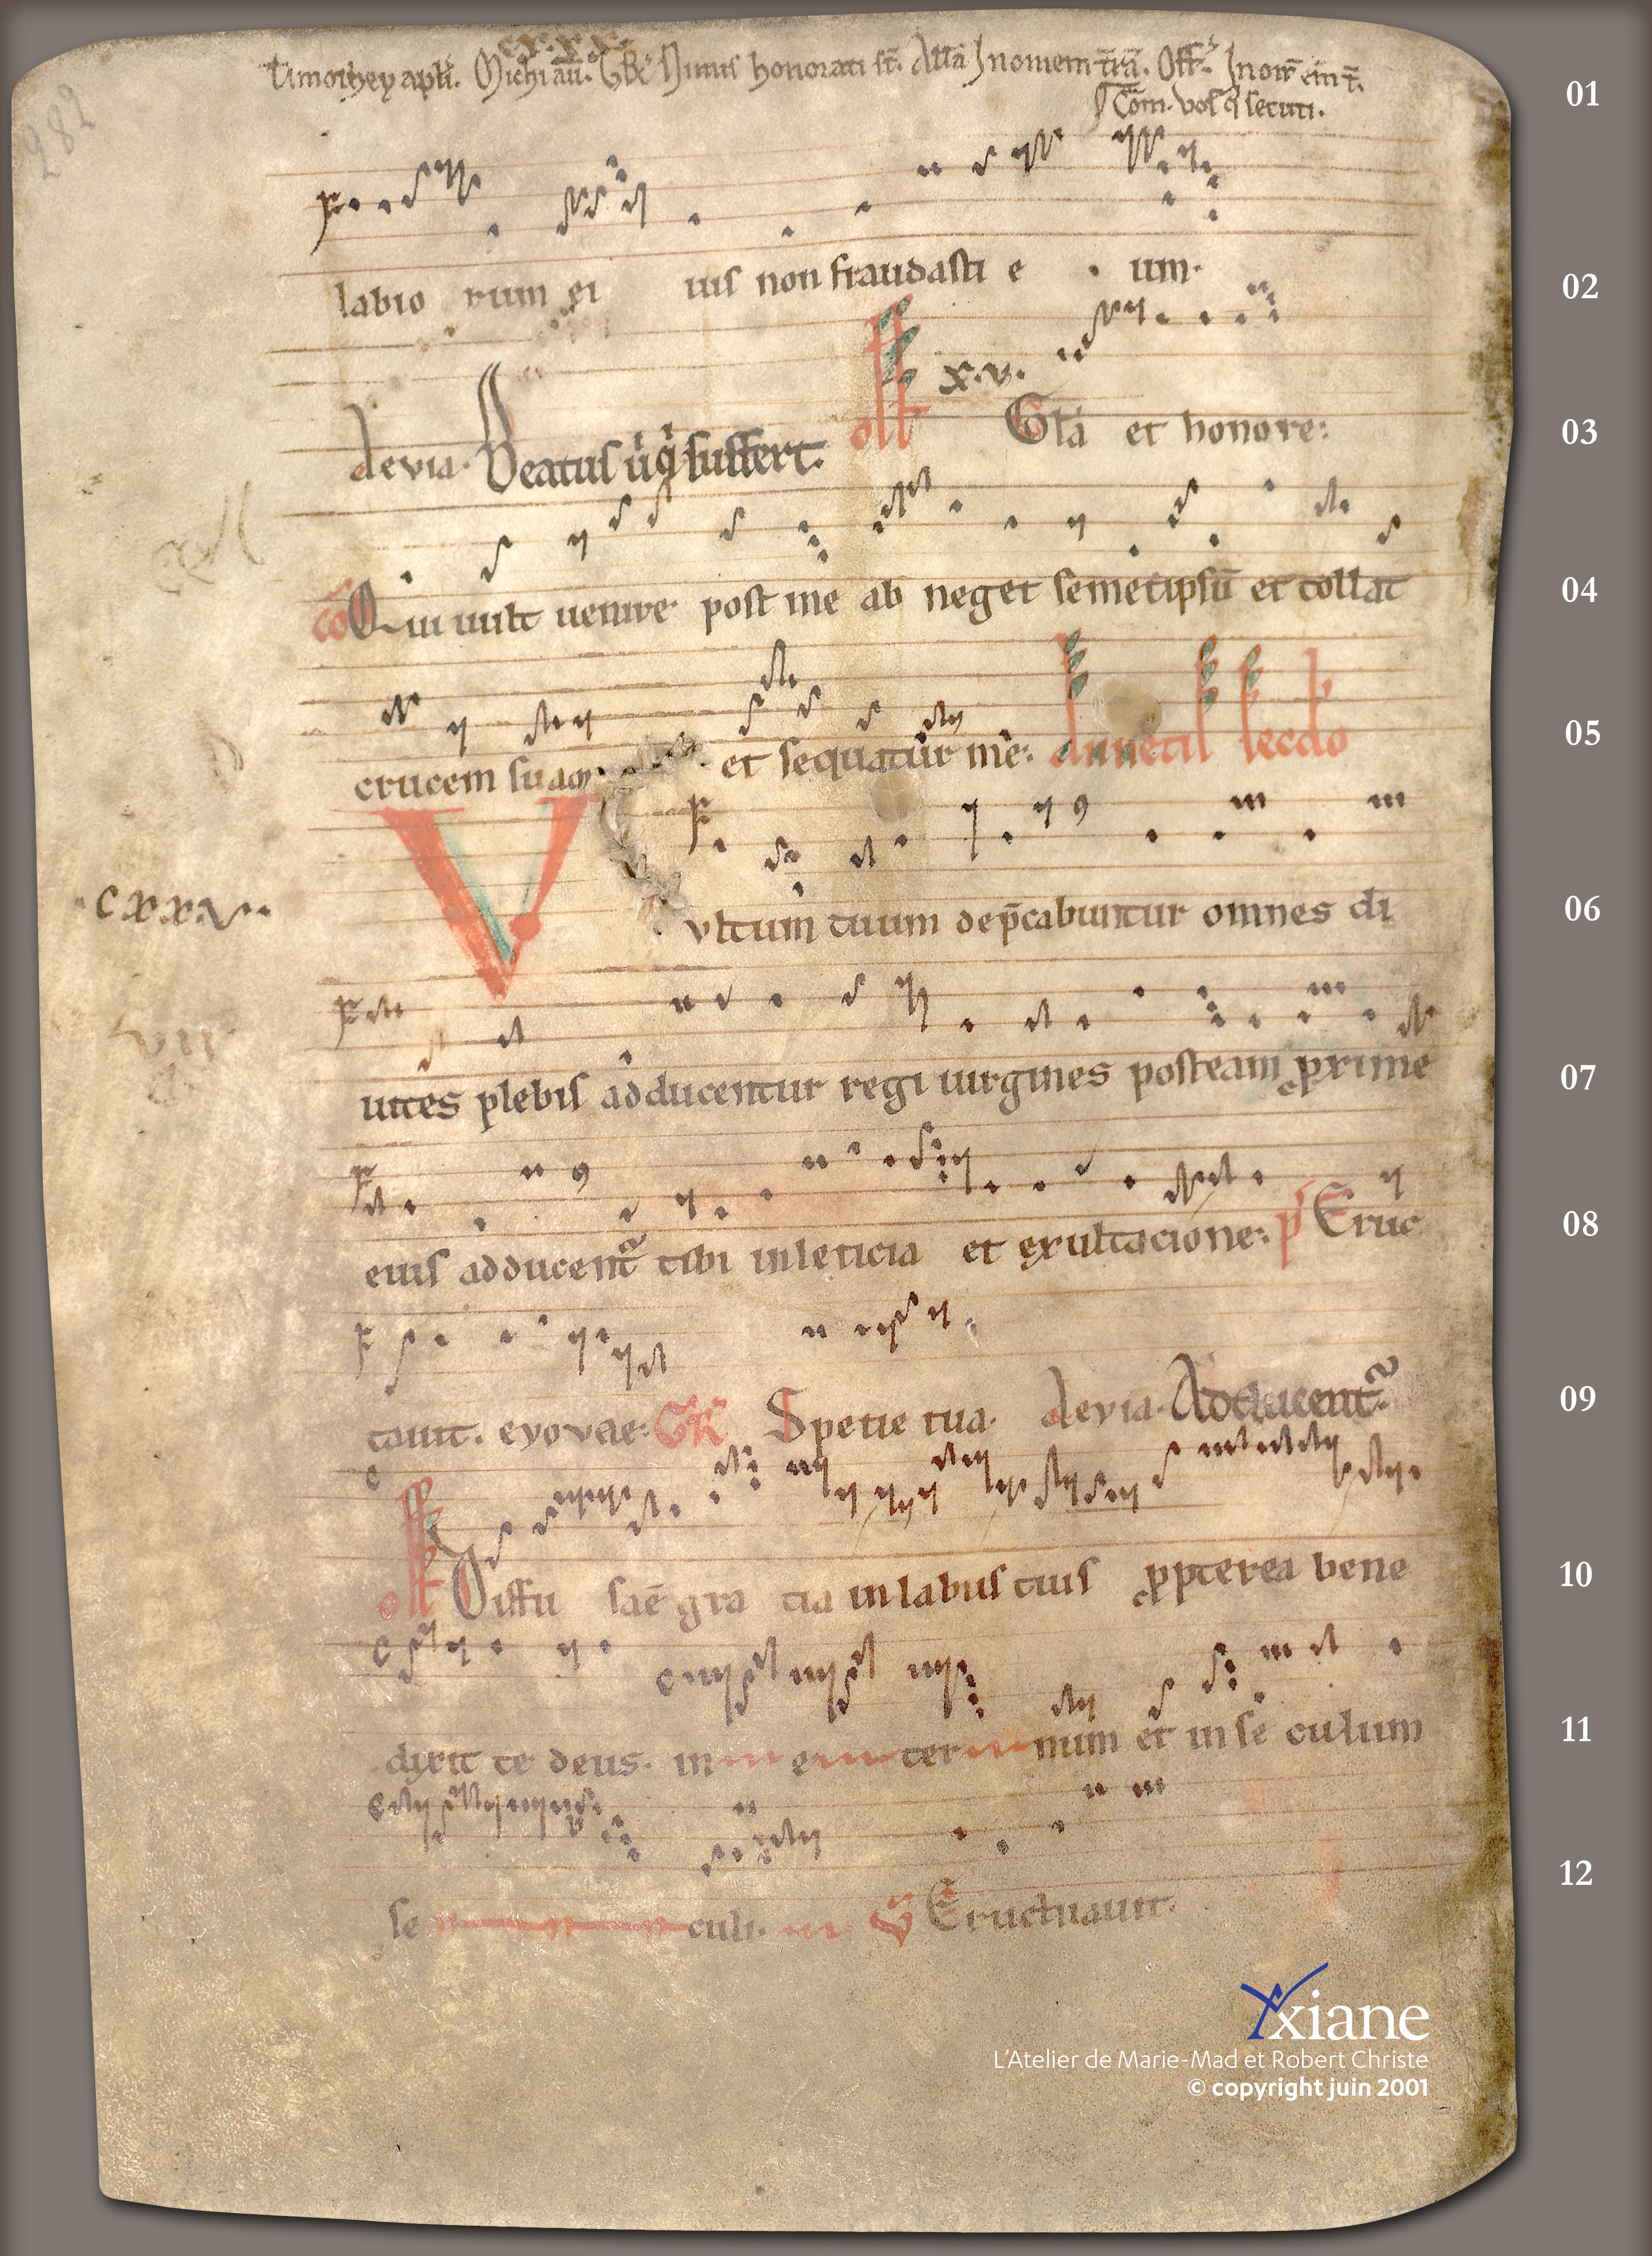 Timothey apłi. Michi aū. GR Nimis honorati st̄. Allā In omem t̄rā. Off. In om̄ em t̄.
Com̄. vos q̄ secuti.
282
01
labio rum ei ius non fraudasti e · um·
02
devia· Beatus uiq̄ suffert. off x·v· Glā et honore:
03
cō Qui uult uenire post me ab neget semetipsū et collat
04
crucem suam· et sequatur me: lecc̄o
05
·cxxv·
Vultum tuum dep̄cabuntur omnes di
06
vii
uites plebis adducentur regi uirgines posteam prxime
07
eius adducent᷑ tibi inleticia et exultacione: ps Eruc
08
tauit. eyovae: GR Spetie tua· devia· Adducent᷑·
09
off Diffu saē gra tia inlabiis tuis ꝓpterea bene
10
dixit te deus. in e ter num et inse culum
11
se culi. V Eructuauit.
12
Axiane
L'Atelier de Marie-Mad et Robert Christe
© copyright juin 2001